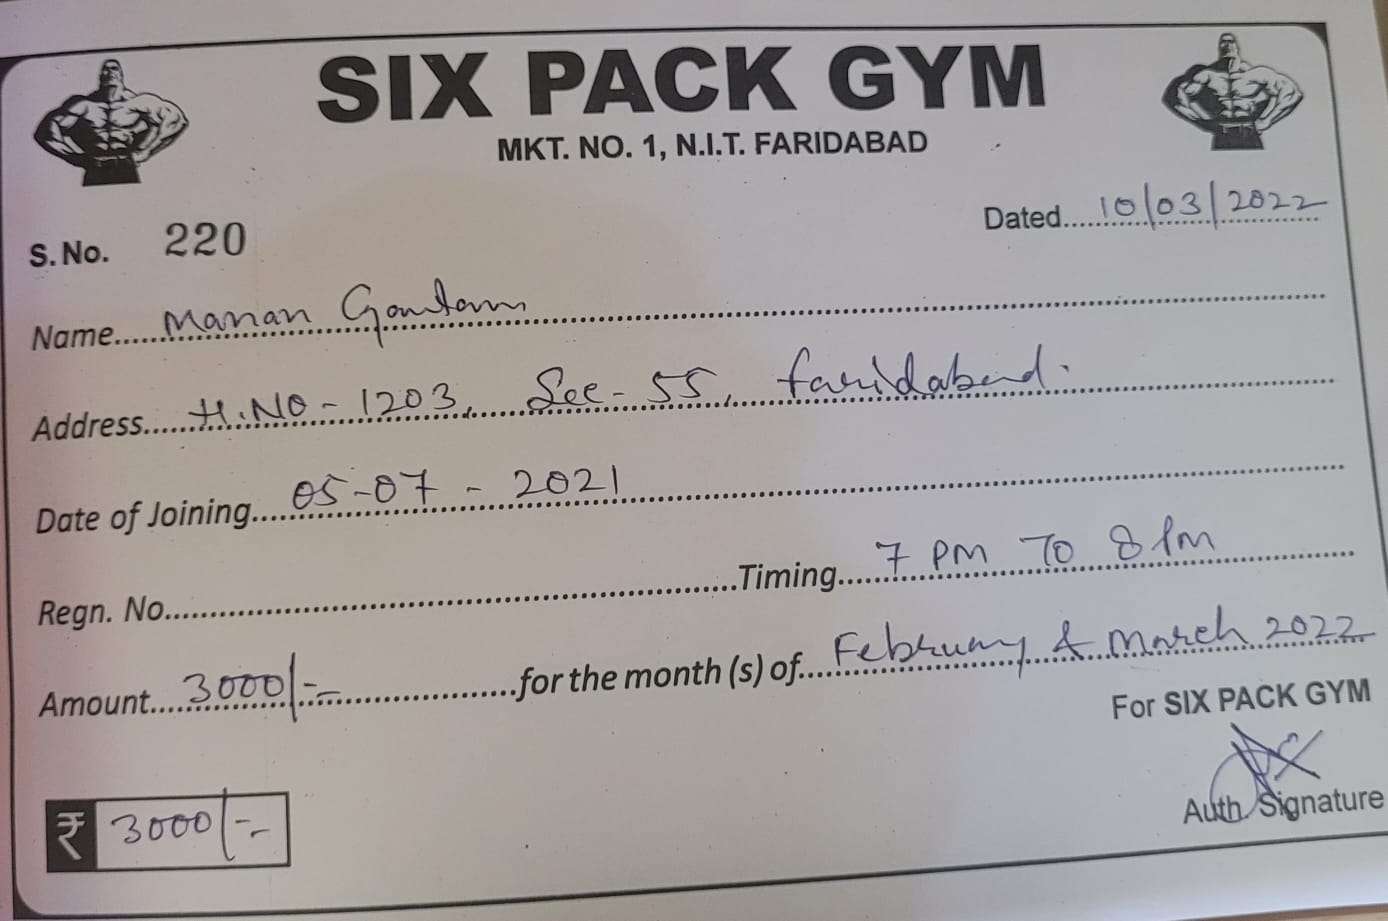 SIX PACK GYM
MKT. NO. 1, N.I.T. FARIDABAD
Dated....10/03/2022
S. No. 220
Name....Manan Gautam
Address....H.NO-1203, Sec-55, faridabad.
Date of Joining....05-07-2021
Regn. No.....Timing....7 PM TO 8 PM
Amount....3000/-....for the month (s) of....February & March 2022
For SIX PACK GYM
₹ 3000/-
Auth. Signature